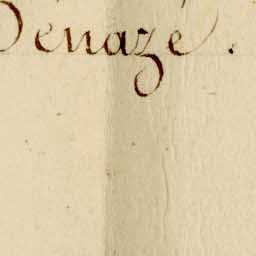 Denazé.